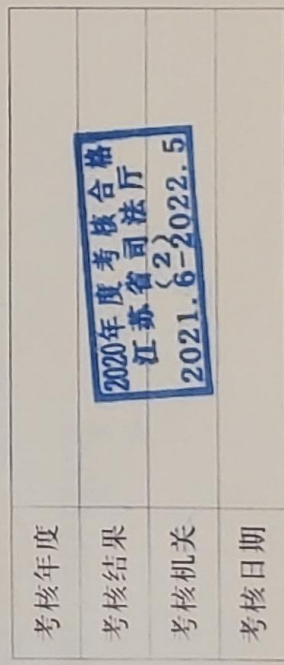 考核年度
考核结果
考核机关
考核日期
2020年度考核合格
江苏省司法厅
(2)
2021.6-2022.5